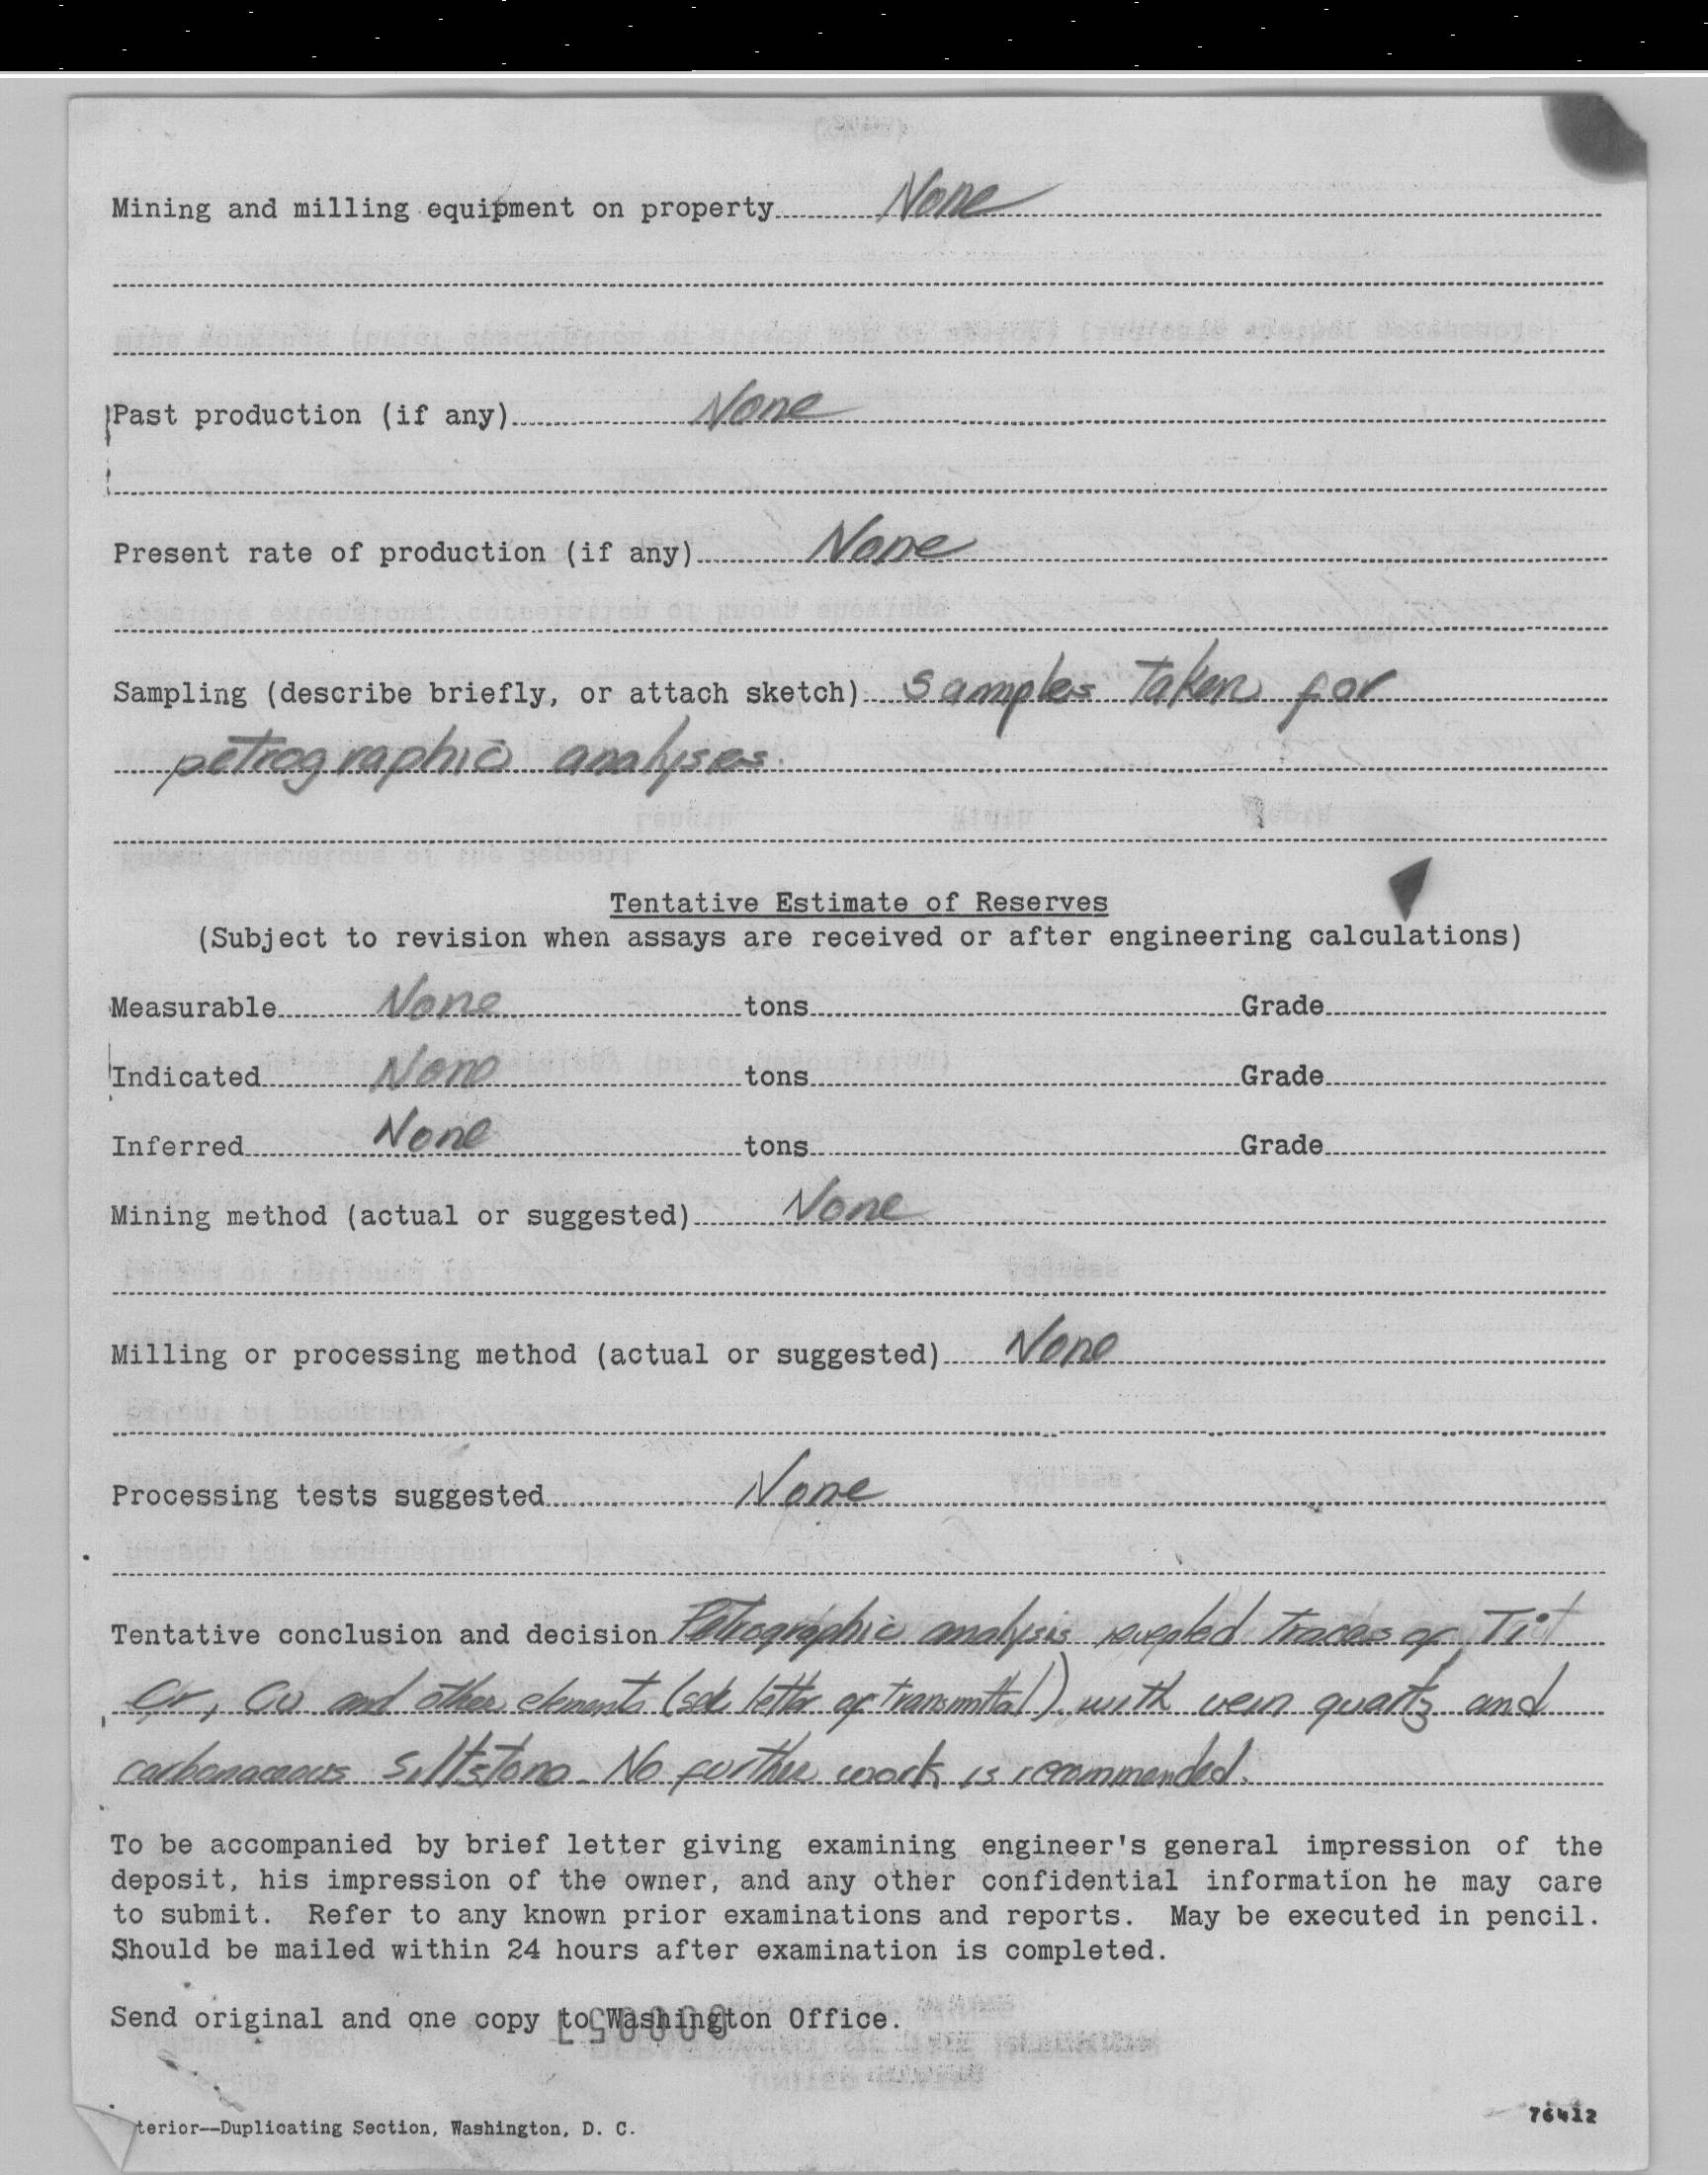 Mining and milling equipment on property None
Past production (if any) None
Present rate of production (if any) None
Sampling (describe briefly, or attach sketch) samples taken for
petrographic analyses.
Tentative Estimate of Reserves
(Subject to revision when assays are received or after engineering calculations)
Measurable None tons Grade
Indicated None tons Grade
Inferred None tons Grade
Mining method (actual or suggested) None
Milling or processing method (actual or suggested) None
Processing tests suggested None
Tentative conclusion and decision Petrographic analysis revealed traces of Ti
Cr, Cu and other elements (see letter of transmittal) with vein quartz and
carbonaceous siltstone. No further work is recommended.
To be accompanied by brief letter giving examining engineer's general impression of the
deposit, his impression of the owner, and any other confidential information he may care
to submit. Refer to any known prior examinations and reports. May be executed in pencil.
Should be mailed within 24 hours after examination is completed.
Send original and one copy to Washington Office.
terior--Duplicating Section, Washington, D. C.
76412